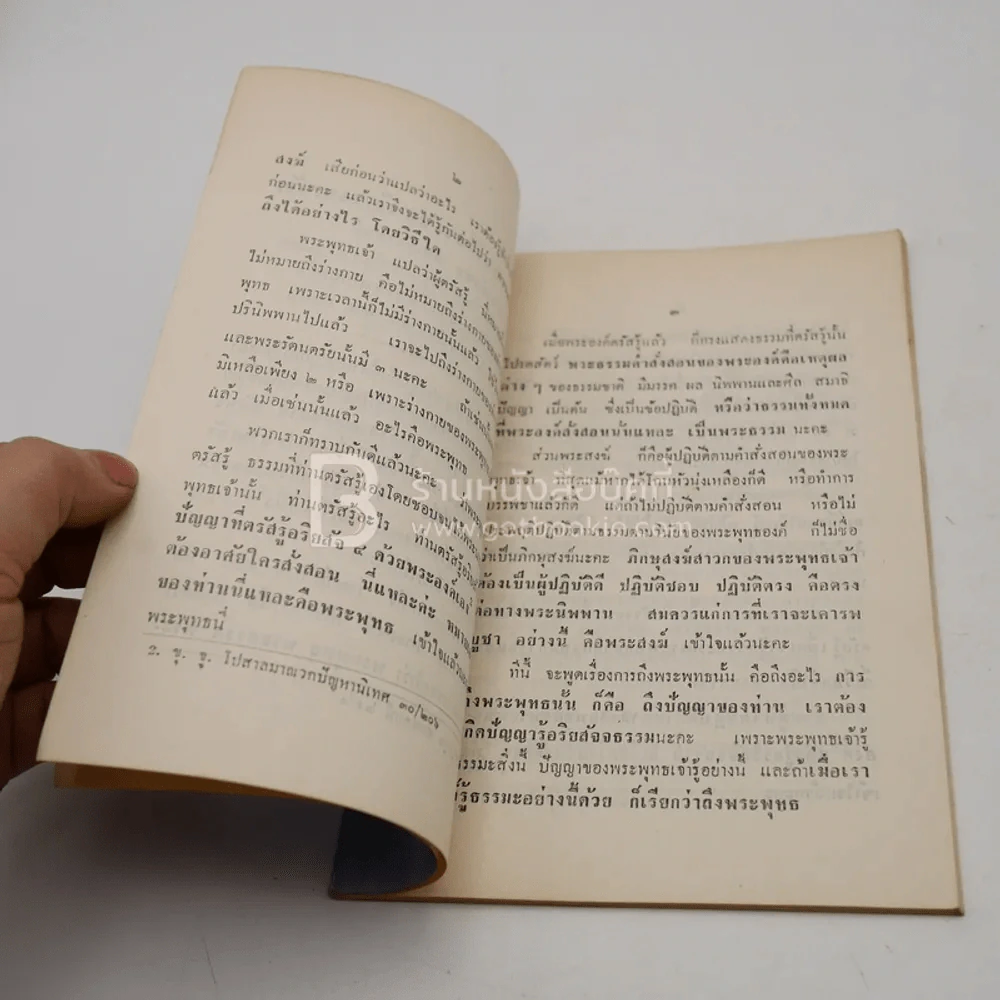 ๒
สงฆ์ เสียก่อนว่าแปลว่าอะไร
ก่อนนะคะ แล้วเราจึงจะได้รู้กันต่อไปว่า
ถึงได้อย่างไร โดยวิธีใด
พระพุทธเจ้า แปลว่าผู้ตรัสรู้
ไม่หมายถึงร่างกาย คือไม่หมายถึงร่างกายของ
พุทธ เพราะเวลานี้ก็ไม่มีร่างกายนั้นแล้ว
ปรินิพพานไปแล้ว เราจะไปถึงร่างกาย
และพระรัตนตรัยนั้นมี ๓ นะคะ
มีเหลือเพียง ๒ หรือ เพราะร่างกายของพระพุทธ
แล้ว เมื่อเช่นนั้นแล้ว อะไรคือพระพุทธ
พวกเราก็ทราบกันดีแล้วนะคะ
ตรัสรู้ ธรรมที่ท่านตรัสรู้เองโดยชอบ
พุทธเจ้านั้น ท่านตรัสรู้อะไร
ปัญญาที่ตรัสรู้อริยสัจ ๔ ด้วยพระองค์เอง
ต้องอาศัยใครสั่งสอน นี่แหละค่ะ
ของท่านนี่แหละคือพระพุทธ เข้าใจแล้ว
พระพุทธนี่
2. ขุ. จู. โปสาลมาณวกปัญหานิเทศ ๓๐/๒๐๖
๓
เมื่อพระองค์ตรัสรู้แล้ว ก็ทรงแสดงธรรมที่ตรัสรู้นั้น
โปรดสัตว์ พระธรรมคำสั่งสอนของพระองค์คือเหตุผล
ต่าง ๆ ของธรรมชาติ มีมรรค ผล นิพพานและศีล สมาธิ
ปัญญา เป็นต้น ซึ่งเป็นข้อปฏิบัติ หรือว่าธรรมทั้งหมด
ที่พระองค์สั่งสอนนั่นแหละ เป็นพระธรรม นะคะ
ส่วนพระสงฆ์ ก็คือผู้ปฏิบัติตามคำสั่งสอนของพระ
ที่สุดแม้หากได้โกนหัวนุ่งเหลืองก็ดี หรือทำการ
บรรพชาแล้วก็ดี แต่ถ้าไม่ปฏิบัติตามคำสั่งสอน หรือไม่
ปฏิบัติตามธรรมตามวินัยของพระพุทธองค์ ก็ไม่ชื่อ
ว่าเป็นภิกษุสงฆ์นะคะ ภิกษุสงฆ์สาวกของพระพุทธเจ้า
ต้องเป็นผู้ปฏิบัติดี ปฏิบัติชอบ ปฏิบัติตรง คือตรง
ต่อทางพระนิพพาน สมควรแก่การที่เราจะเคารพ
บูชา อย่างนี้ คือพระสงฆ์ เข้าใจแล้วนะคะ
ทีนี้ จะพูดเรื่องการถึงพระพุทธนั้น คือถึงอะไร การ
ถึงพระพุทธนั้น ก็คือ ถึงปัญญาของท่าน เราต้อง
เกิดปัญญารู้อริยสัจจธรรมนะคะ เพราะพระพุทธเจ้ารู้
ธรรมะสิ่งนี้ ปัญญาของพระพุทธเจ้ารู้อย่างนี้ และถ้าเมื่อเรา
รู้ธรรมะอย่างนี้ด้วย ก็เรียกว่าถึงพระพุทธ
B ร้านหนังสือบุ๊คกี้
www.getbookie.com